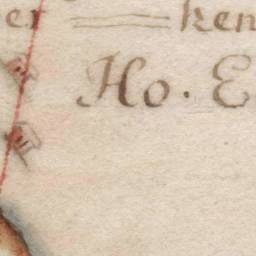 er == ken
Ho. E